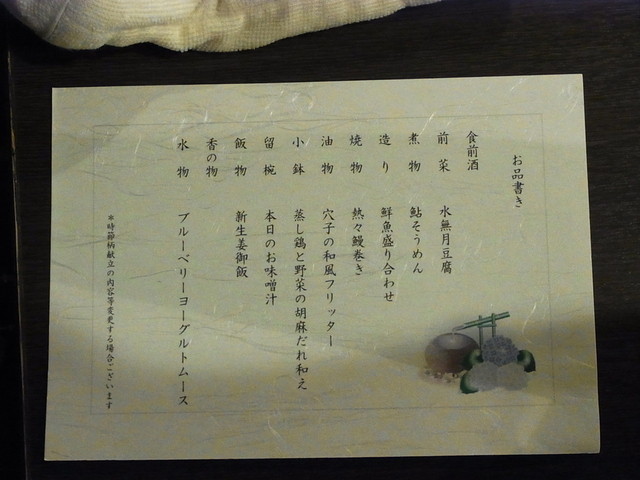 お品書き
食前酒
前菜 水無月豆腐
煮物 鮎そうめん
造り 鮮魚盛り合わせ
焼物 熱々鰻巻き
油物 穴子の和風フリッター
小鉢 蒸し鶏と野菜の胡麻だれ和え
留椀 本日のお味噌汁
飯物 新生姜御飯
香の物
水物 ブルーベリーヨーグルトムース
*時節柄献立の内容等変更する場合ございます